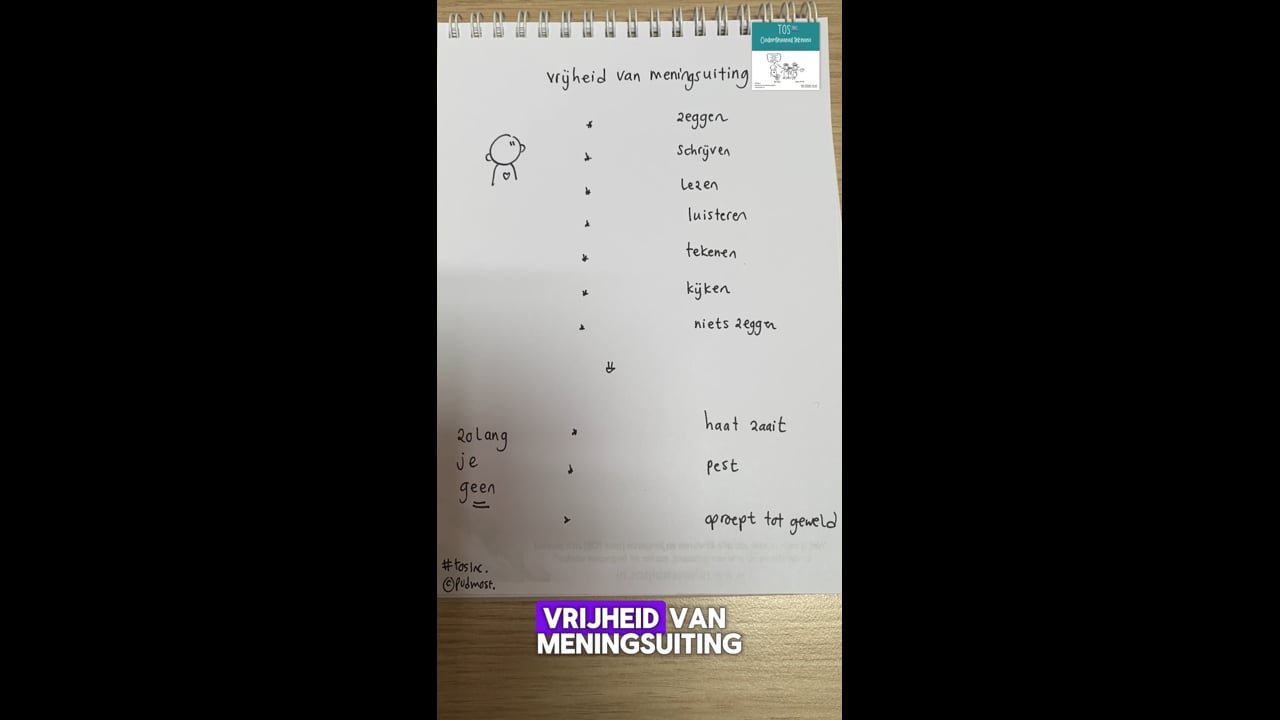 TOS inc
Ondersteunend Tekenen
vrijheid van meningsuiting
zeggen
schrijven
lezen
luisteren
tekenen
kijken
niets zeggen
zolang
je
geen
haat zaait
pest
oproept tot geweld
#tosinc.
©Pudmost.
VRIJHEID VAN
MENINGSUITING